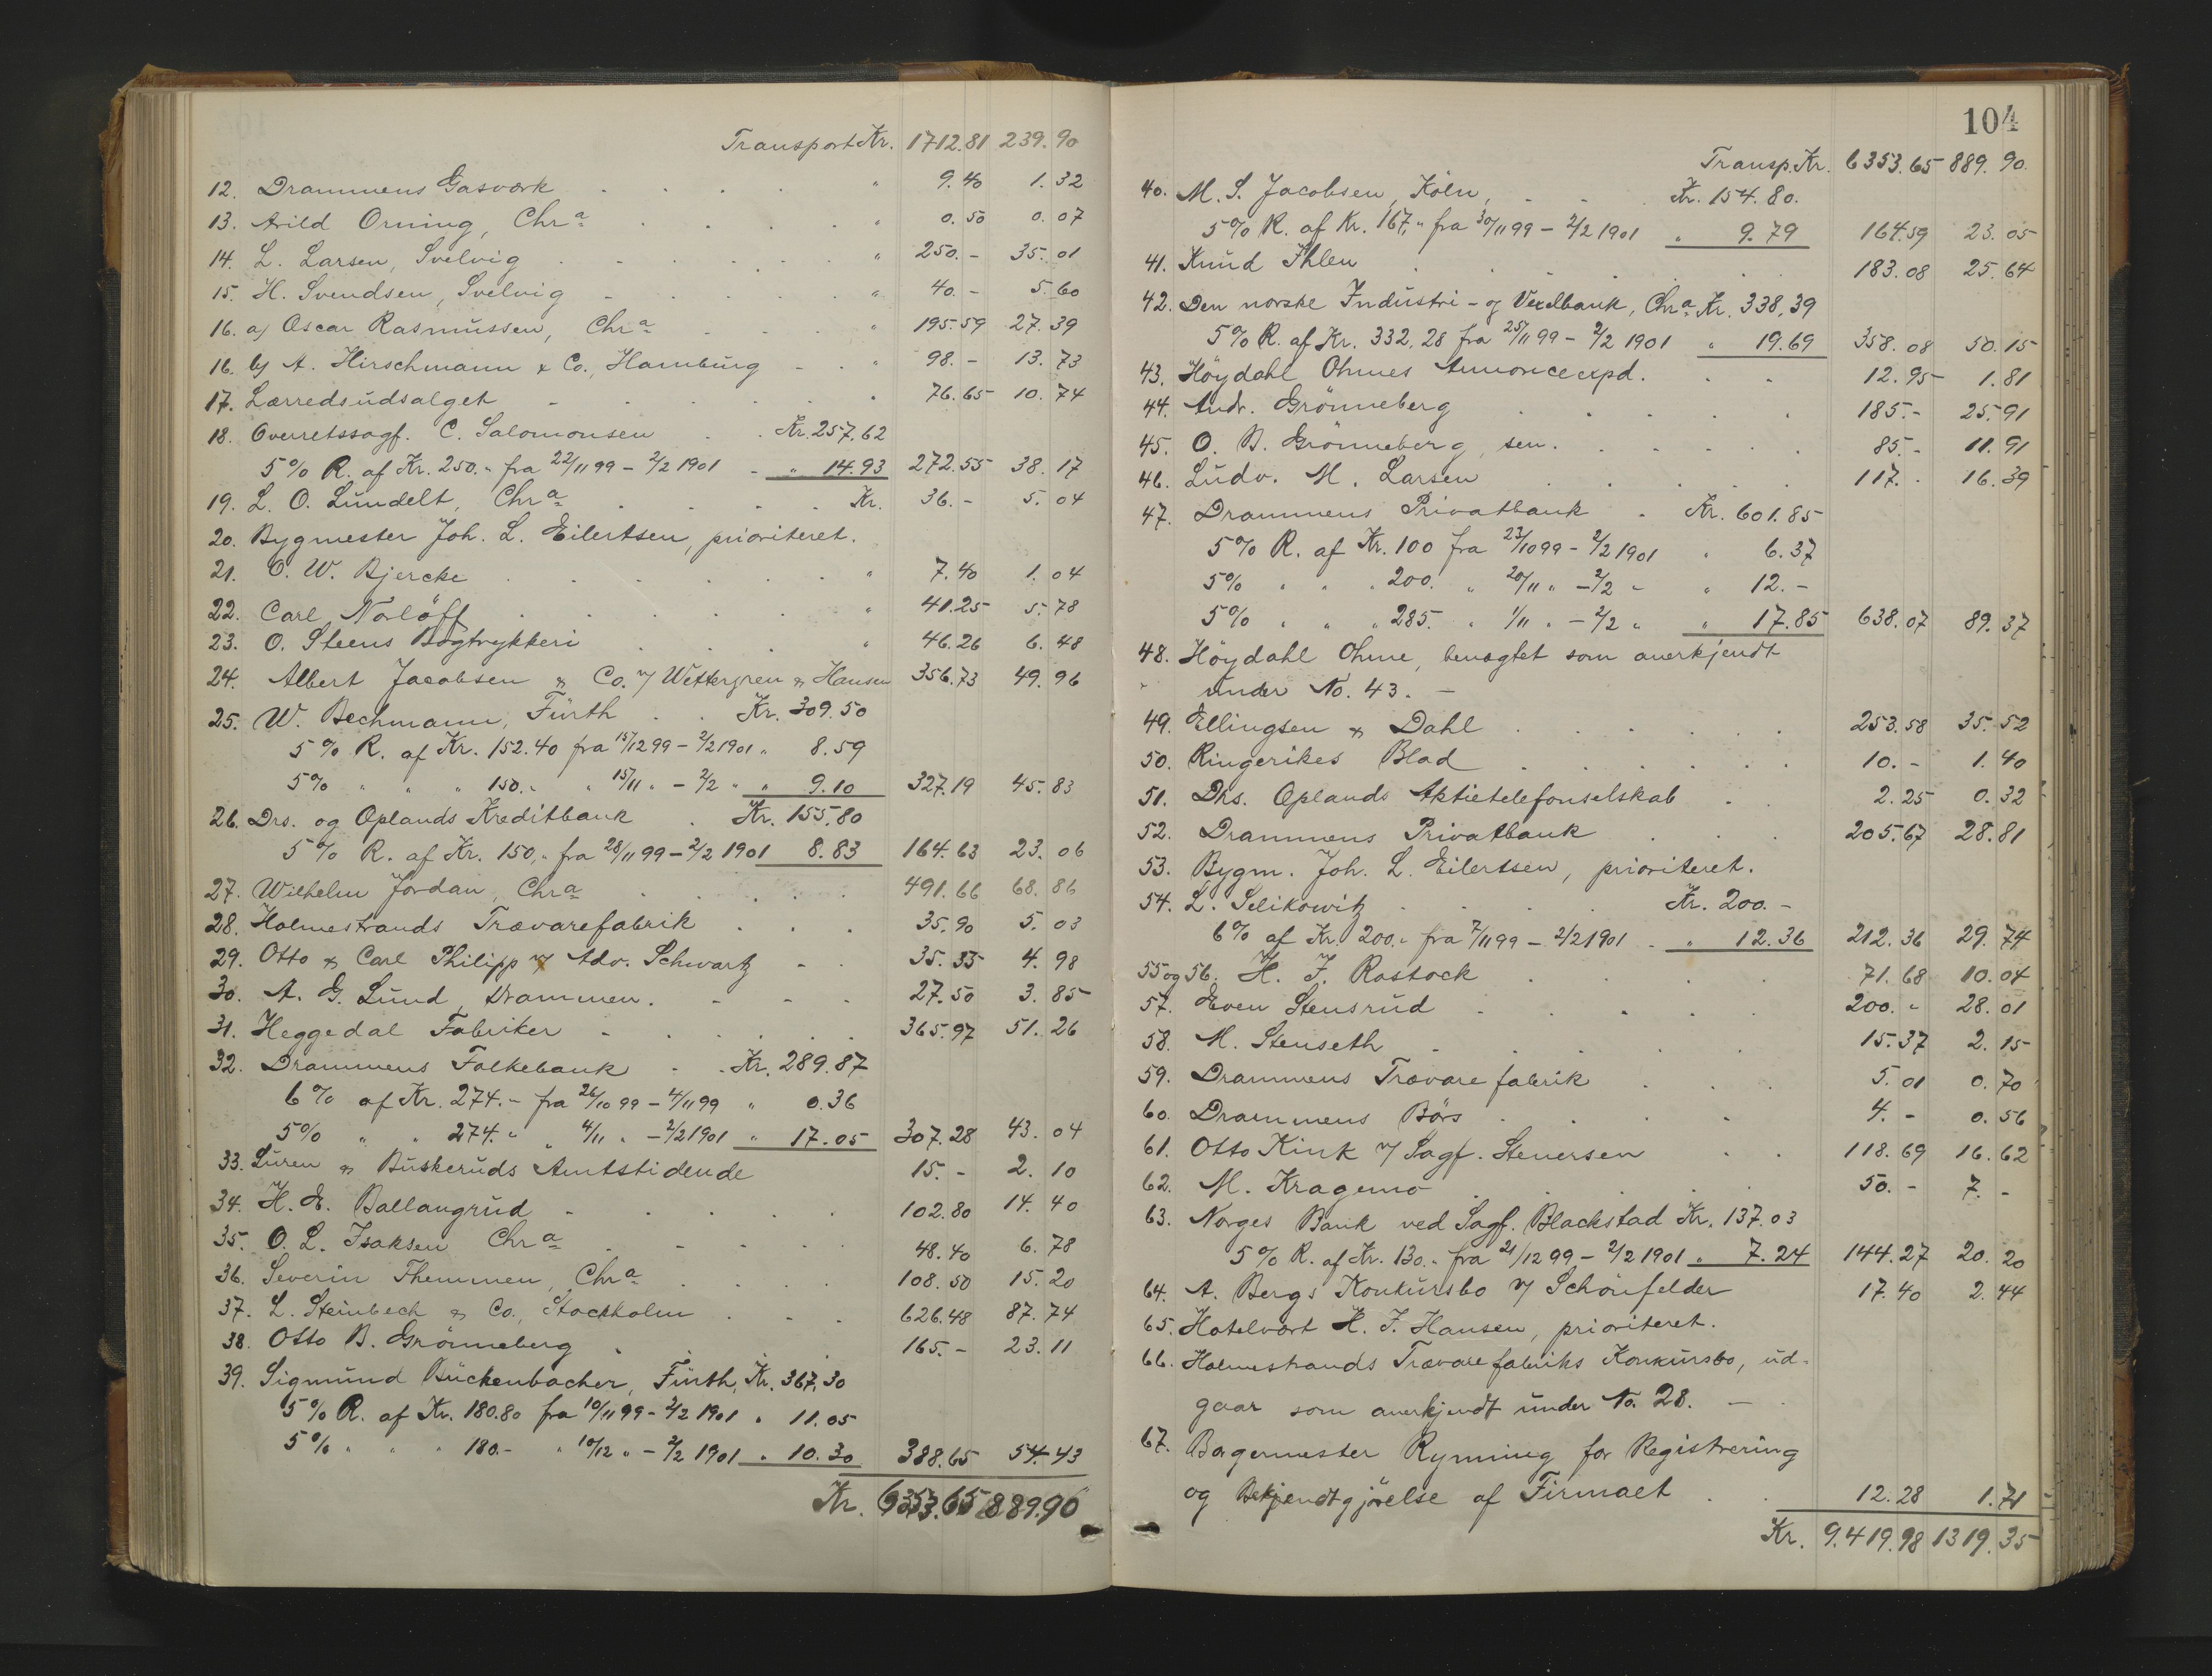 Transport Kr. 1712.81 239.90
12. Drammens Gasværk . . . . " 9.40 1.32
13. Arild Orning, Chra . . . . " 0.50 0.07
14. L. Larsen, Svelvig . . . . . " 250.- 35.01
15. H. Svendsen, Svelvig . . . . " 40.- 5.60
16. a) Oscar Rasmussen, Chra . . . " 195.59 27.39
16. b) A. Hirschmann & Co., Hamburg - . " 98.- 13.73
17. Lærredsudsalget - . . . . . 76.65 10.74
18. Overretssagf. C. Salomonsen . . Kr. 257.62
5% R. af Kr. 250." fra 22/11 99 - 2/2 1901 - " 14.93 272.55 38.17
19. L. O. Lundelt, Chra . . . . Kr. 36.- 5.04
20. Bygmester Joh. L. Eilertsen, prioriteret.
21. O. W. Bjercke . . . . . . " 7.40 1.04
22. Carl Norløff . . . . . " 41.25 5.78
23. O. Steens Bogtrykkeri . . . . " 46.26 6.48
24. Albert Jacobsen & Co. v/ Wettergren & Hansen 356.73 49.96
25. W. Bechmann, Fürth . . Kr. 309.50
5% R. af Kr. 152.40 fra 15/12 99 - 2/2 1901 " 8.59
5% " " " 150." " 15/11 " - 2/2 " " 9.10 327.19 45.83
26. Drs. og Oplands Kreditbank . Kr. 155.80
5% R. af Kr. 150," fra 28/11 99 - 2/2 1901 8.83 164.63 23.06
27. Wilhelm Jordan, Chra . . . . . 491.66 68.86
28. Holmestrands Trævarefabrik . . . 35.90 5.03
29. Otto & Carl Philipp v/ Adv. Schwartz - . 35.55 4.98
30. A. G. Lund, Drammen. - - . 27.50 3.85
31. Heggedal Fabriker - . . . . 365.97 51.26
32. Drammens Folkebank . . Kr. 289.87
6% af Kr. 274.- fra 26/10 99 - 4/11 99 " 0.36
5% " " 274." " 4/11 " - 2/2 1901 " 17.05 307.28 43.04
33. Buskeruds Amtstidende 15.- 2.10
34. H. E. Ballangrud - . . . . 102.80 14.40
35. O. L. Isaksen Chra . - . . . 48.40 6.78
36. Severin Themmen, Chra . . . . 108.50 15.20
37. L. Steinbech & Co., Stockholm . . . 626.48 87.74
38. Otto B. Grönneberg . . . 165.- 23.11
39. Sigmund Bückenbacher, Fürth, Kr. 367,30
5% R. af Kr. 180.80 fra 10/11 99 - 2/2 1901 " 11.05
5% " " " 180.- " 10/12 " - 2/2 1901 " 10.30 388.65 54.43
Kr. 6353.65 889.90
104
Transp. Kr. 6353.65 889.90.
40. M. S. Jacobsen, Köln, . . . Kr. 154.80.
5% R. af Kr. 167," fra 30/11 99 - 2/2 1901 " 9.79 164.59 23.05
41. Knud Ihlen . . . . . . 183.08 25.64
42. Den norske Industri- og Vexelbank, Chra. Kr. 338,39
5% R. af Kr. 332,28 fra 25/11 99 - 2/2 1901 " 19.69 358.08 50.15
43. Höydahl Ohmes Annonceexpd. . . 12.95 1.81
44. Andr. Grönneberg . . . . . 185.- 25.91
45. O. B. Grönneberg, sen. . . . . . 85.- 11.91
46. Ludv. M. Larsen . . . . . 117.- 16.39
47. Drammens Privatbank . Kr. 601.85
5% R. af Kr. 100 fra 23/10 99 - 2/2 1901 " 6.37
5% " " " 200. " 20/11 " - 2/2 " " 12.-
5% " " " 285. " 1/11 " - 2/2 " " 17.85 638.07 89.37
48. Höydahl Ohme, benægtet som anerkjendt
under No. 43. -
49. Ellingsen & Dahl . . . . . . 253.58 35.52
50. Ringerikes Blad . . . . . . 10.- 1.40
51. Drs. Oplands Aktietelefonselskab . . 2.25 0.32
52. Drammens Privatbank . . . 205.67 28.81
53. Bygm. Joh. L. Eilertsen, prioriteret.
54. L. Selikowitz . . . . Kr. 200.-
6% af Kr. 200." fra 7/11 99 - 2/2 1901 - " 12.36 212.36 29.74
55 og 56. H. J. Rostock . . . . 71.68 10.04
57. Even Stensrud . . . . . 200." 28.01
58. M. Stenseth . . . . . 15.37 2.15
59. Drammens Trævarefabrik . . . 5.01 0.70
60. Drammens Börs . . . . 4.- 0.56
61. Otto Kink v/ Sagf. Stenersen . . 118.69 16.62
62. M. Kragemo . . . . . 50.- 7.-
63. Norges Bank ved Sagf. Blackstad Kr. 137.03
5% R. af Kr. 130." fra 21/12 99 - 2/2 1901 " 7.24 144.27 20.20
64. A. Bergs Konkursbo v/ Schönfelder 17.40 2.44
65. Hotelvært H. J. Hansen, prioriteret.
66. Holmestrands Trævarefabriks Konkursbo, ud-
gaar som anerkjendt under No. 28. -
67. Bagermester Rynning for Registrering
og Bekjendtgjörelse af Firmaet . . 12.28 1.71
Kr. 9.419.98 1319.35